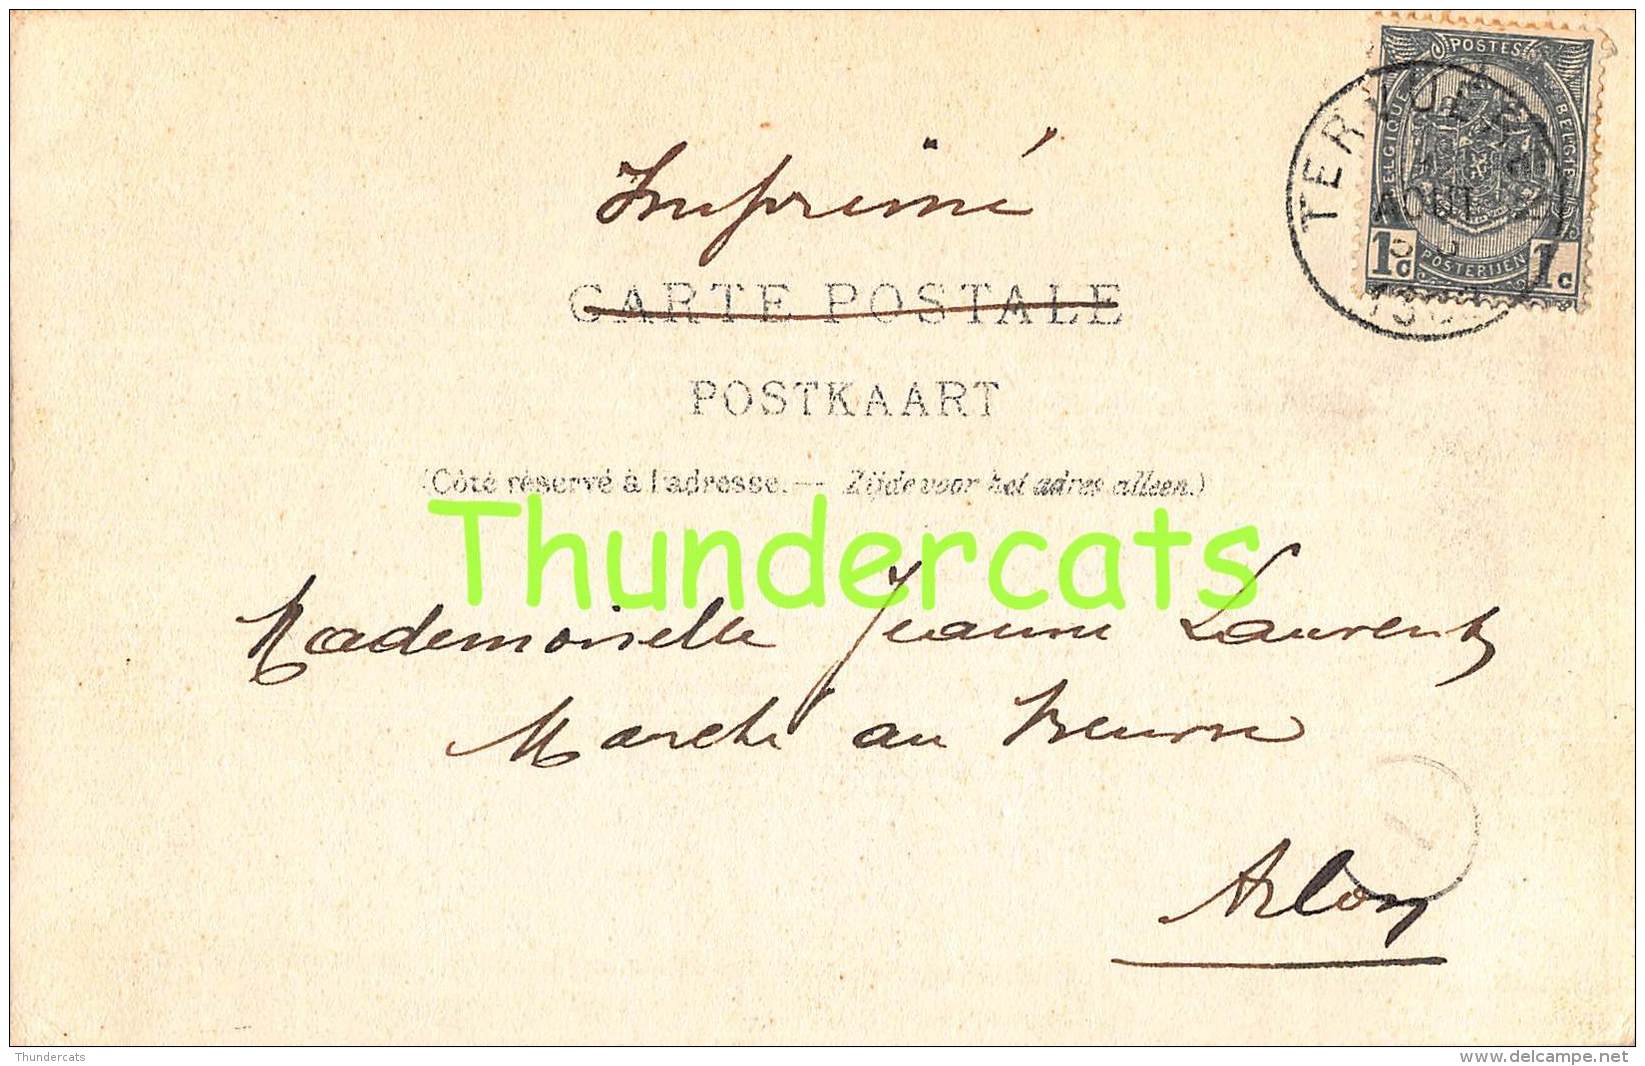 POSTES
BELGIQUE
BELGIE
TERVUEREN
AOUT
1c 1c
POSTERIJEN
Imprimé
CARTE POSTALE
POSTKAART
(Côté réservé à l'adresse. — Zijde voor het adres alleen.)
Thundercats
Mademoiselle Jeanne Laurent
Marché au Beurre
Arlon
Thundercats
www.delcampe.net